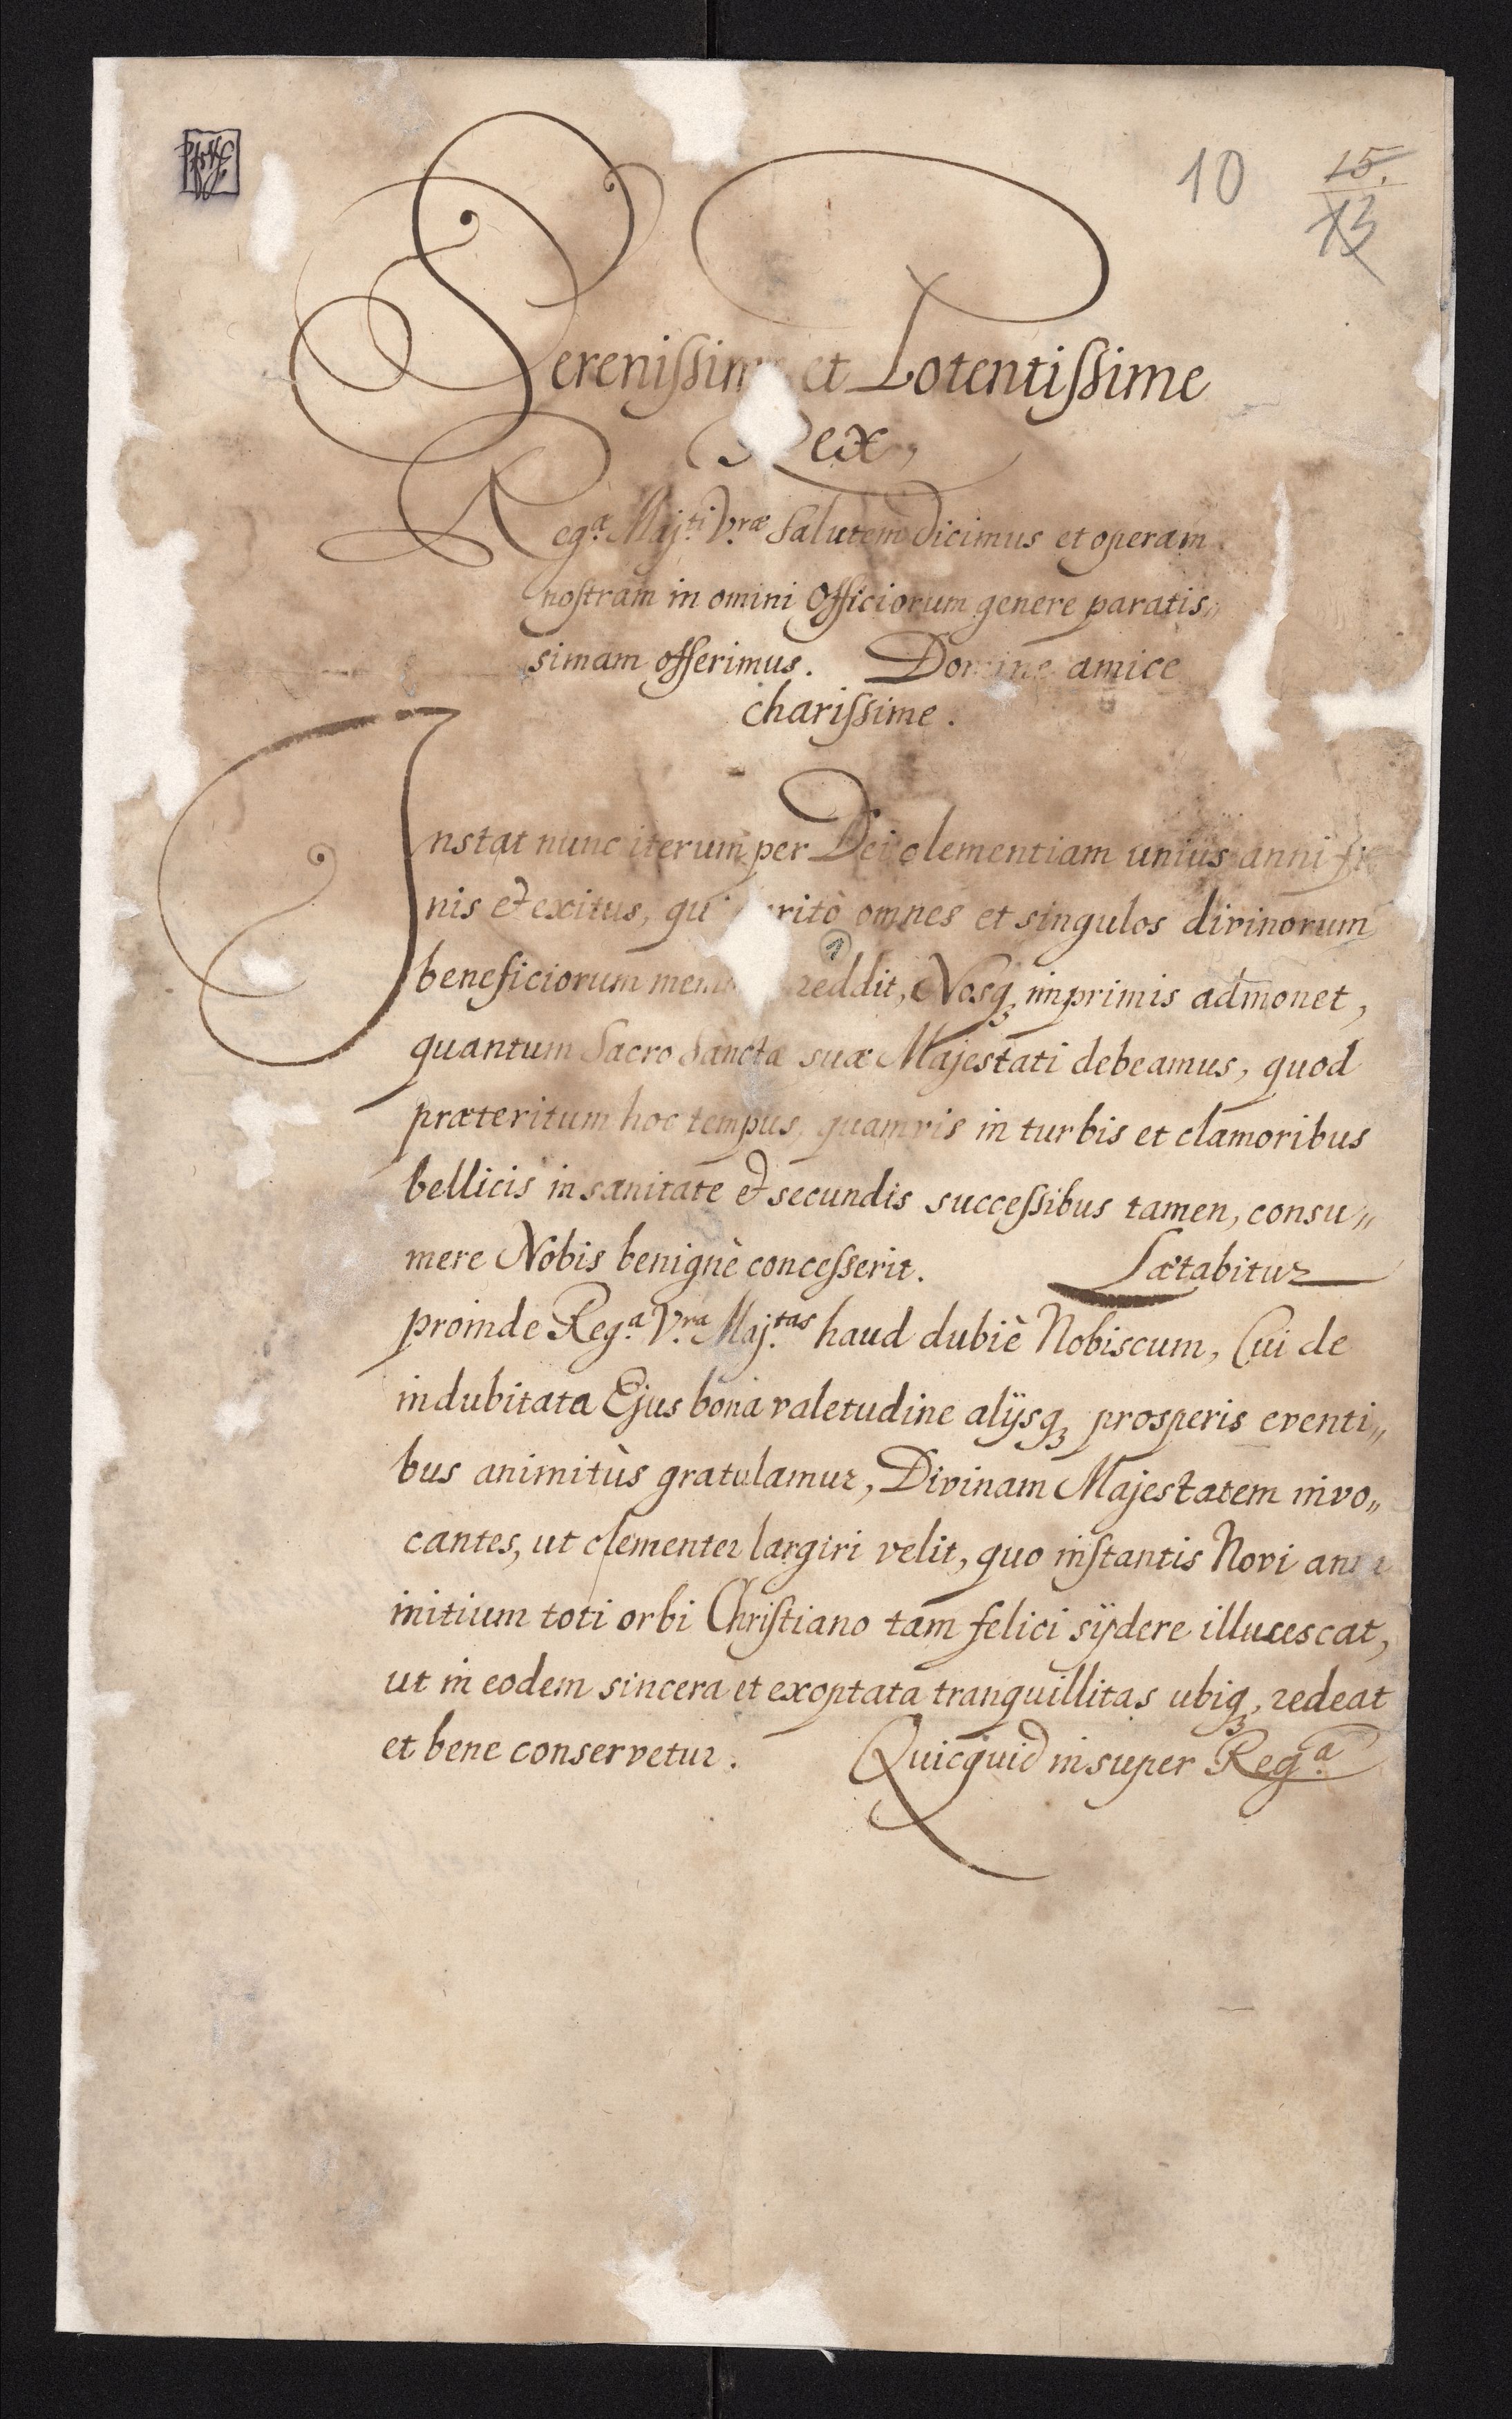 10 15.
13
Serenissim et Potentissime
Rex,
Reg.ᵃ Maj.ᵗⁱ V.ʳæ Salutem dicimus et operam
nostram in omini Officiorum genere paratis„
simam offerimus. Domine amice
charissime.
Instat nunc iterum per Dei clementiam unius anni fi
nis et exitus, qu ritò omnes et singulos divinorum
beneficiorum mem reddit, Nosq₃ imprimis admonet,
quantum Sacro Sanctæ suæ Majestati debeamus, quod
præteritum hoc tempus, quamvis in turbis et clamoribus
bellicis in sanitate et secundis successibus tamen, consu„
mere Nobis benignè concesserit. Lætabitur
proinde Reg.ᵃ V.ʳᵃ Maj.ᵗᵃˢ haud dubiè Nobiscum, Cui de
indubitata Ejus bona valetudine alijsq₃ prosperis eventi„
bus animitùs gratulamur, Divinam Majestatem invo„
cantes, ut clementer largiri velit, quo instantis Novi an
initium toti orbi Christiano tam felici sÿdere illucescat,
ut in eodem sincera et exoptata tranquillitas ubiq₃, redeat
et bene conservetur. Quicquid insuper Reg.ᵃ